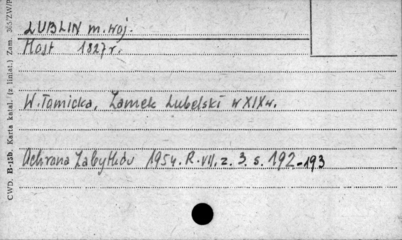 LUBLIN m. woj.
Most 1827 r.
W. Tomicka, Zamek Lubelski w XIX w.
Ochrona Zabytków 1954. R. VII, z. 3. s. 192-193
CWD. B-15b. Karta katal. (z liniat.) Zam.